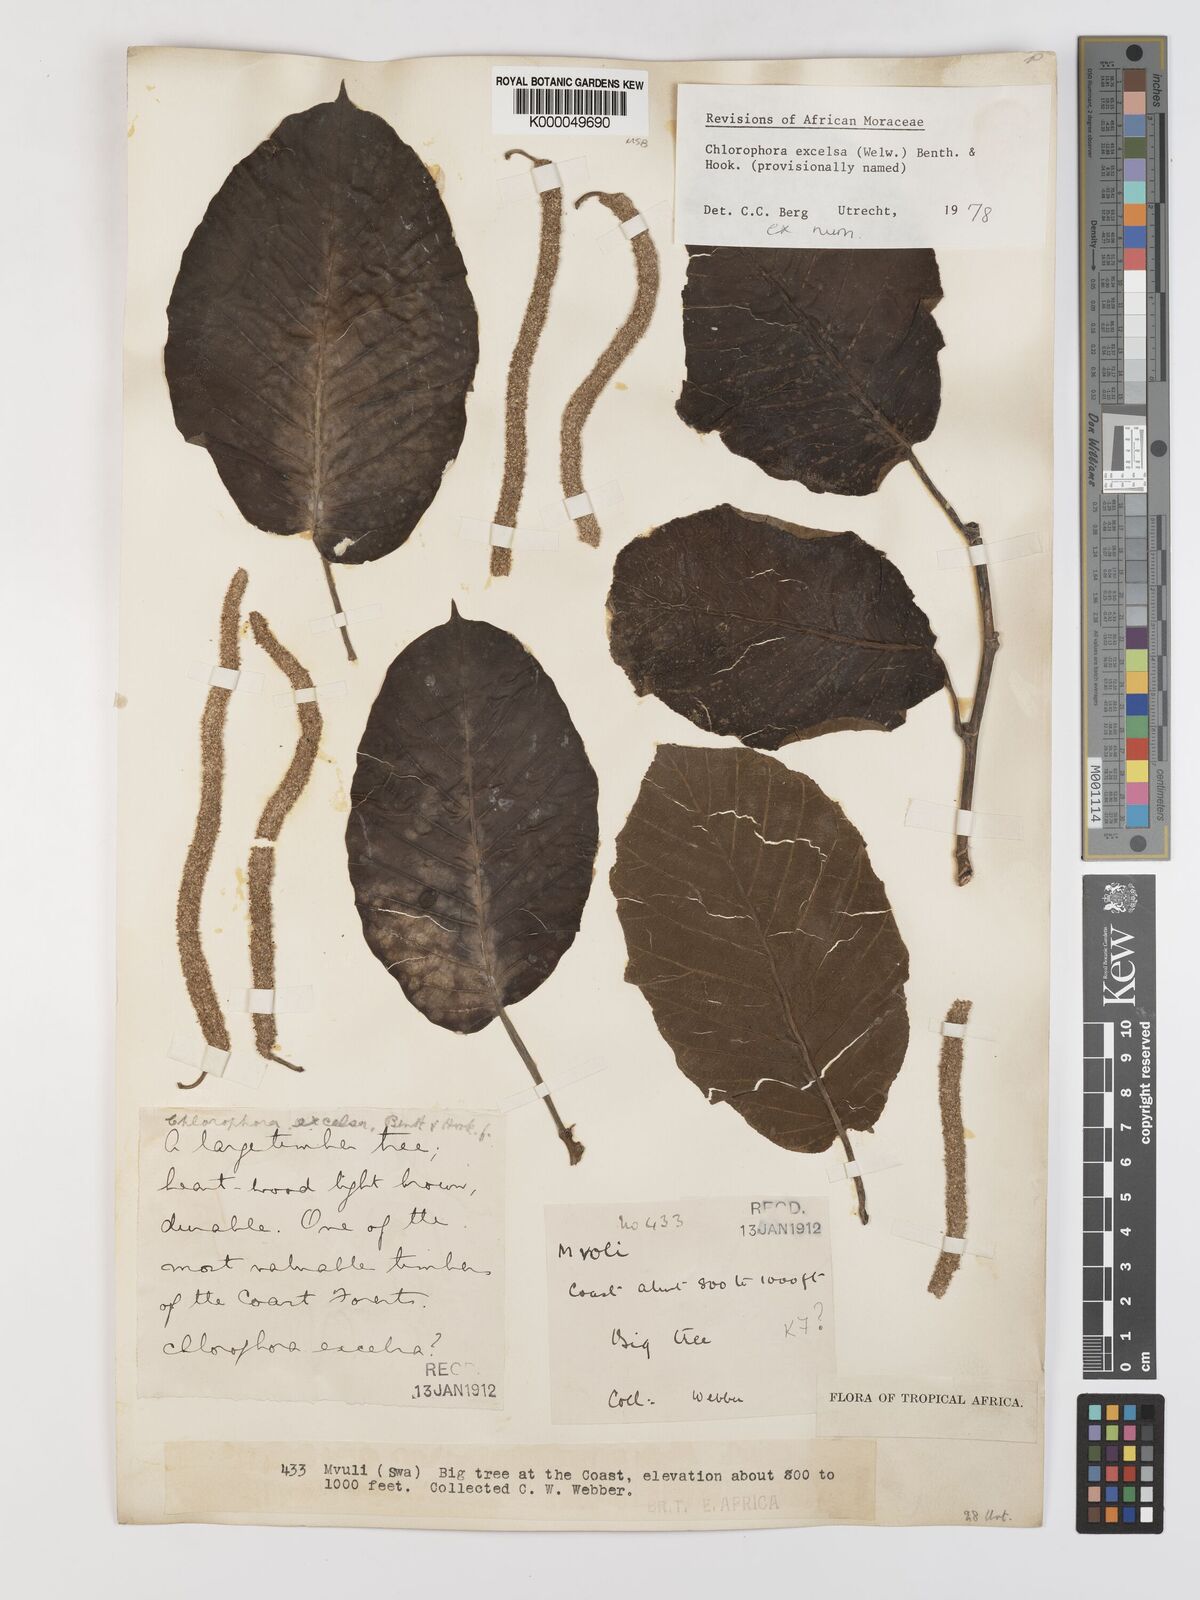 ROYAL BOTANIC GARDENS KEW
K000049690
MSB
Revisions of African Moraceae
Chlorophora excelsa (Welw.) Benth. &
Hook. (provisionally named)
Det. C.C. Berg Utrecht, 1978
ex num.
Chlorophora excelsa, Benth & Hook. f.
A large timber tree;
heart-wood light brown,
durable. One of the
most valuable timbers
of the Coast Forests.
Chlorophora excelsa?
RECD.
13 JAN 1912
No 433
RECD.
13 JAN 1912
Mvoli
Coast about 800 to 1000 ft
Big tree
K7?
Coll:. Webber
FLORA OF TROPICAL AFRICA.
433 Mvuli (Swa) Big tree at the Coast, elevation about 800 to
1000 feet. Collected C. W. Webber.
BR.T. E. AFRICA
inches
Density
Don Williams
M001114
centimeters
Royal Botanic Gardens
Kew
0 1 2 3 4 5 6 7 8 9 10
cm
copyright reserved